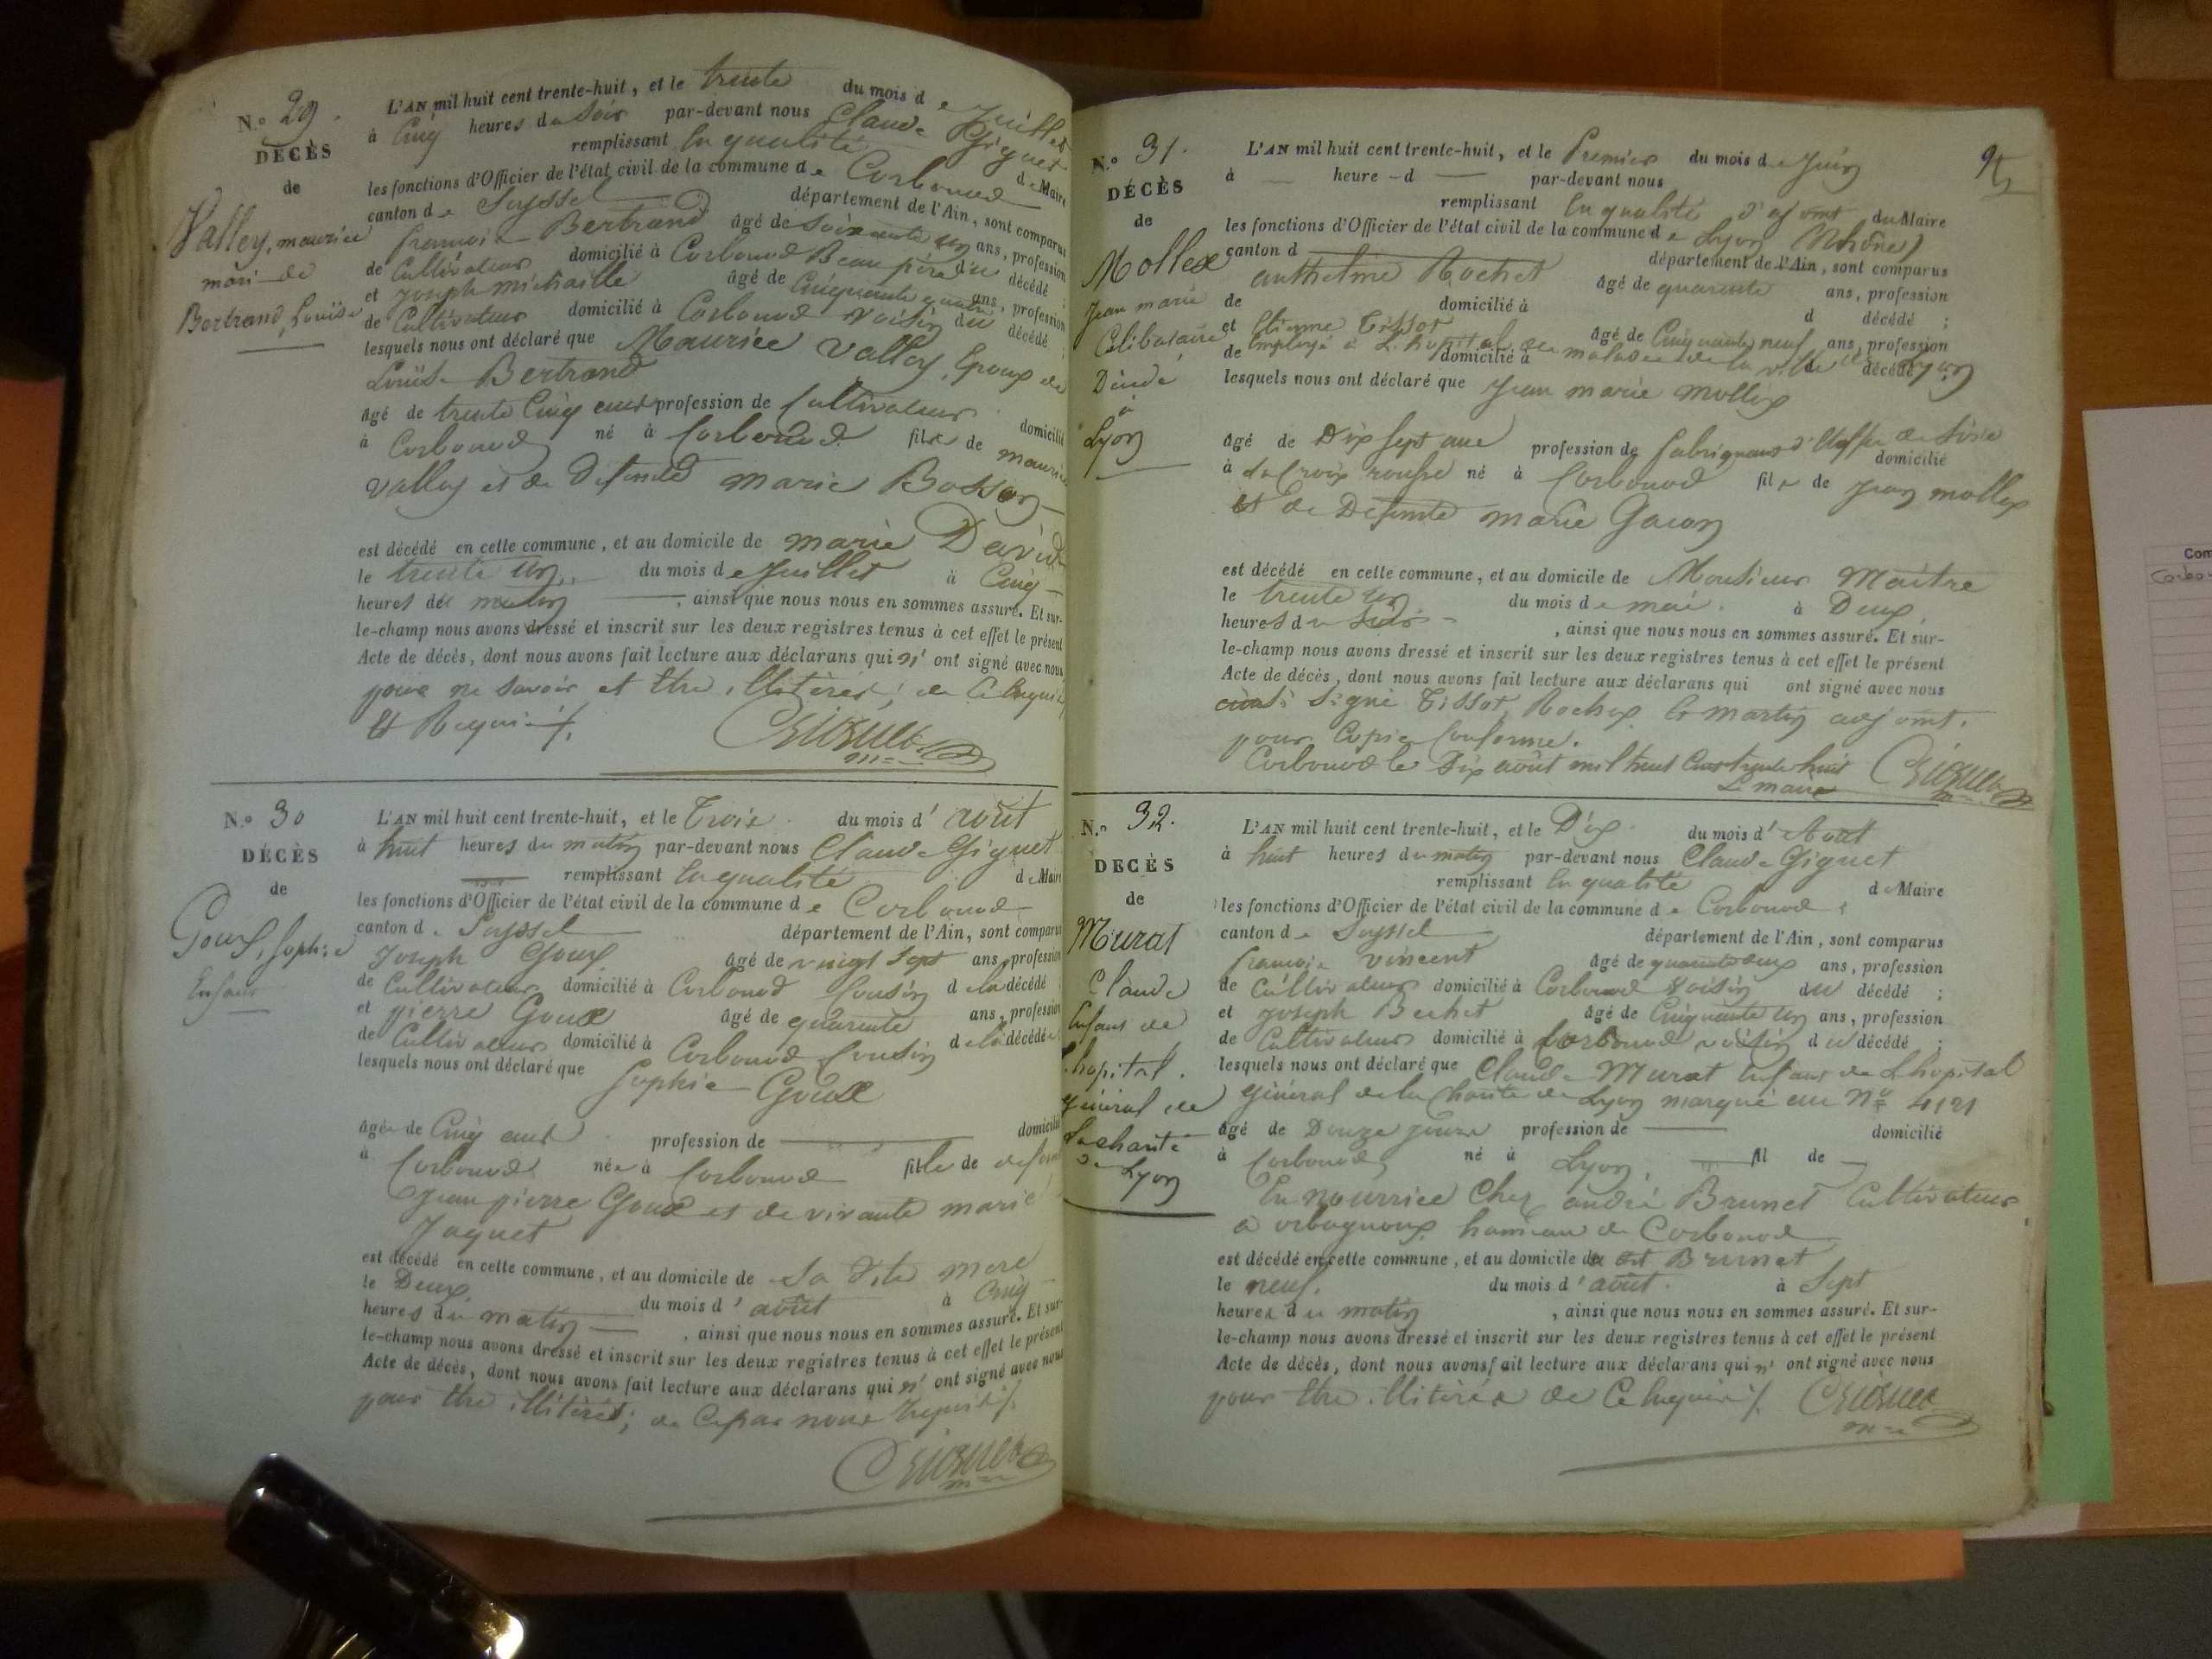 N.° 29.
DÉCÈS
de
Valley, maurice
mari de
Bertrand, Louise
L'AN mil huit cent trente-huit, et le trente du mois de Juillet
à Cinq heures du soir par-devant nous Claude Giguet
remplissant en qualité de Maire
les fonctions d'Officier de l'état civil de la commune de Corbonod
canton de Seyssel département de l'Ain, sont comparus
françois Bertrand âgé de soixante un ans, profession
de Cultivateur domicilié à Corbonod Beau père du décédé ;
et Joseph michaille âgé de Cinquante quatre ans, profession
de Cultivateur domicilié à Corbonod voisin du décédé ;
lesquels nous ont déclaré que Maurice Valley, Epoux de
Louise Bertrand
âgé de trente Cinq ans profession de Cultivateur domicilié
à Corbonod né à Corbonod fils de maurice
Valley et de defunte marie Bosson
est décédé en cette commune, et au domicile de marie David
le trente un du mois de Juillet à Cinq
heures du matin, ainsi que nous nous en sommes assuré. Et sur-
le-champ nous avons dressé et inscrit sur les deux registres tenus à cet effet le présent
Acte de décès, dont nous avons fait lecture aux déclarans qui n' ont signé avec nous
pour ne savoir et être illitérés ; de Ce Enquis
Et Requis
N.° 30
DÉCÈS
de
Goux, Sophie
Enfant
L'AN mil huit cent trente-huit, et le Trois du mois d' août
à huit heures du matin par-devant nous Claude Giguet
remplissant en qualité de Maire
les fonctions d'Officier de l'état civil de la commune de Corbonod
canton de Seyssel département de l'Ain, sont comparus
Joseph Goux âgé de vingt Sept ans, profession
de Cultivateur domicilié à Corbonod Cousin de la décédé
et pierre Goux âgé de quarente ans, profession
de Cultivateur domicilié à Corbonod Cousin de la décédée
lesquels nous ont déclaré que Sophie Goux
âgée de Cinq ans profession de domicilié
à Corbonod née à Corbonod fille de defunt
Jean pierre Goux et de vivante marie
Jaquet
est décédé en cette commune, et au domicile de Sa dite mere
le Deux du mois d' août à Cinq
heures du matin, ainsi que nous nous en sommes assuré. Et sur-
le-champ nous avons dressé et inscrit sur les deux registres tenus à cet effet le présent
Acte de décès, dont nous avons fait lecture aux déclarans qui n' ont signé avec nous
pour être illitérés ; de Ce par nous Requis
N.° 31.
DÉCÈS
de
Mollex
Jean marie
Célibataire
Décédé
à
Lyon
L'AN mil huit cent trente-huit, et le Premier du mois de Juin
à heure d par-devant nous
remplissant en qualité d'ajoint du Maire
les fonctions d'Officier de l'état civil de la commune de Lyon (Rhône)
canton d département de l'Ain, sont comparus
anthelme Rochet âgé de quarente ans, profession
de domicilié à d décédé ;
et Etienne Tissot âgé de Cinquante neuf ans, profession
de Employé à L'hopital des malades de la ville de Lyon domicilié à d décédé
lesquels nous ont déclaré que Jean marie mollex
âgé de Dix Sept ans profession de fabriquant d'Etoffes de Soie domicilié
à La Croix rousse né à Corbonod fils de Jean mollex
et de Defunte marie Gacon
est décédé en cette commune, et au domicile de Monsieur Maitre
le trente un du mois de mai. à Deux
heures du soir, ainsi que nous nous en sommes assuré. Et sur-
le-champ nous avons dressé et inscrit sur les deux registres tenus à cet effet le présent
Acte de décès, dont nous avons fait lecture aux déclarans qui ont signé avec nous
ainsi Signé Tissot, Rochex martin adjoint.
pour Copie Conforme.
Corbonod le Dix août mil huit Cent trente huit
Le maire
N.° 32.
DÉCÈS
de
Murat
Claude
Enfant de
L'hopital
général de
La charité
de Lyon
L'AN mil huit cent trente-huit, et le Dix du mois d' Août
à huit heures du matin par-devant nous Claude Giguet
remplissant en qualité de Maire
les fonctions d'Officier de l'état civil de la commune de Corbonod
canton de Seyssel département de l'Ain, sont comparus
françois vincent âgé de quarante deux ans, profession
de Cultivateur domicilié à Corbonod voisin du décédé ;
et Joseph Berthet âgé de Cinquante un ans, profession
de Cultivateur domicilié à Corbonod voisin du décédé ;
lesquels nous ont déclaré que Claude Murat Enfant de L'hopital
général de la Charité de Lyon marqué au N° 4121
âgé de Douze Jours profession de domicilié
à Corbonod né à Lyon, fil de
En nourrice Chez andré Brunet Cultivateur
à orbagnoux hameau de Corbonod
est décédé en cette commune, et au domicile du dit Brunet
le neuf du mois d' août. à Sept
heures du matin, ainsi que nous nous en sommes assuré. Et sur-
le-champ nous avons dressé et inscrit sur les deux registres tenus à cet effet le présent
Acte de décès, dont nous avons fait lecture aux déclarans qui n' ont signé avec nous
pour être illitérés de Ce Enquis